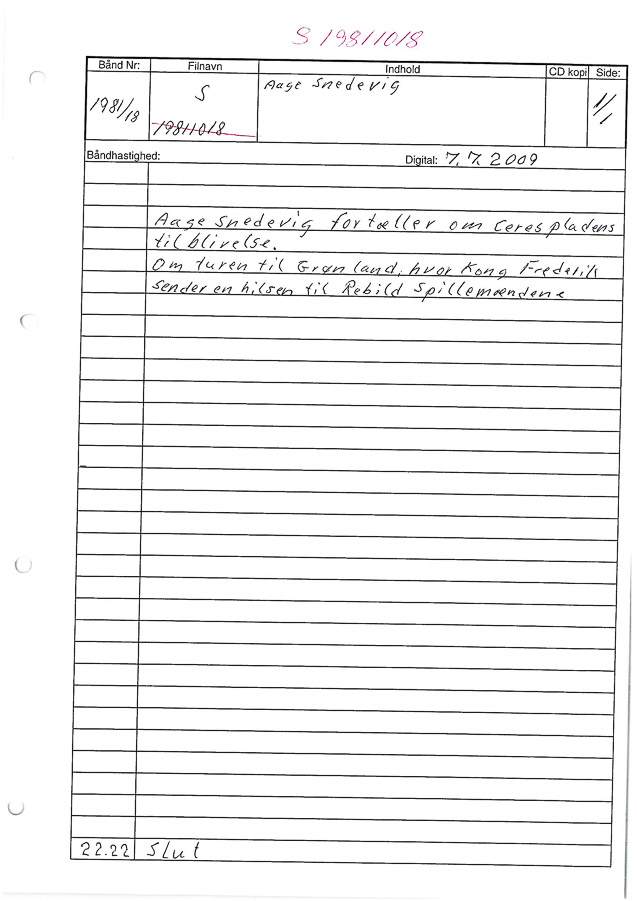 S 19811018
Bånd Nr: Filnavn Indhold CD kopi Side:
1981/18 S Aage Snedevig 1/1
19811018
Båndhastighed: Digital: 7.7.2009
Aage Snedevig fortæller om Cerespladens
tilblivelse.
Om turen til Grønland, hvor Kong Frederik
sender en hilsen til Rebild Spillemændene
22.22 Slut